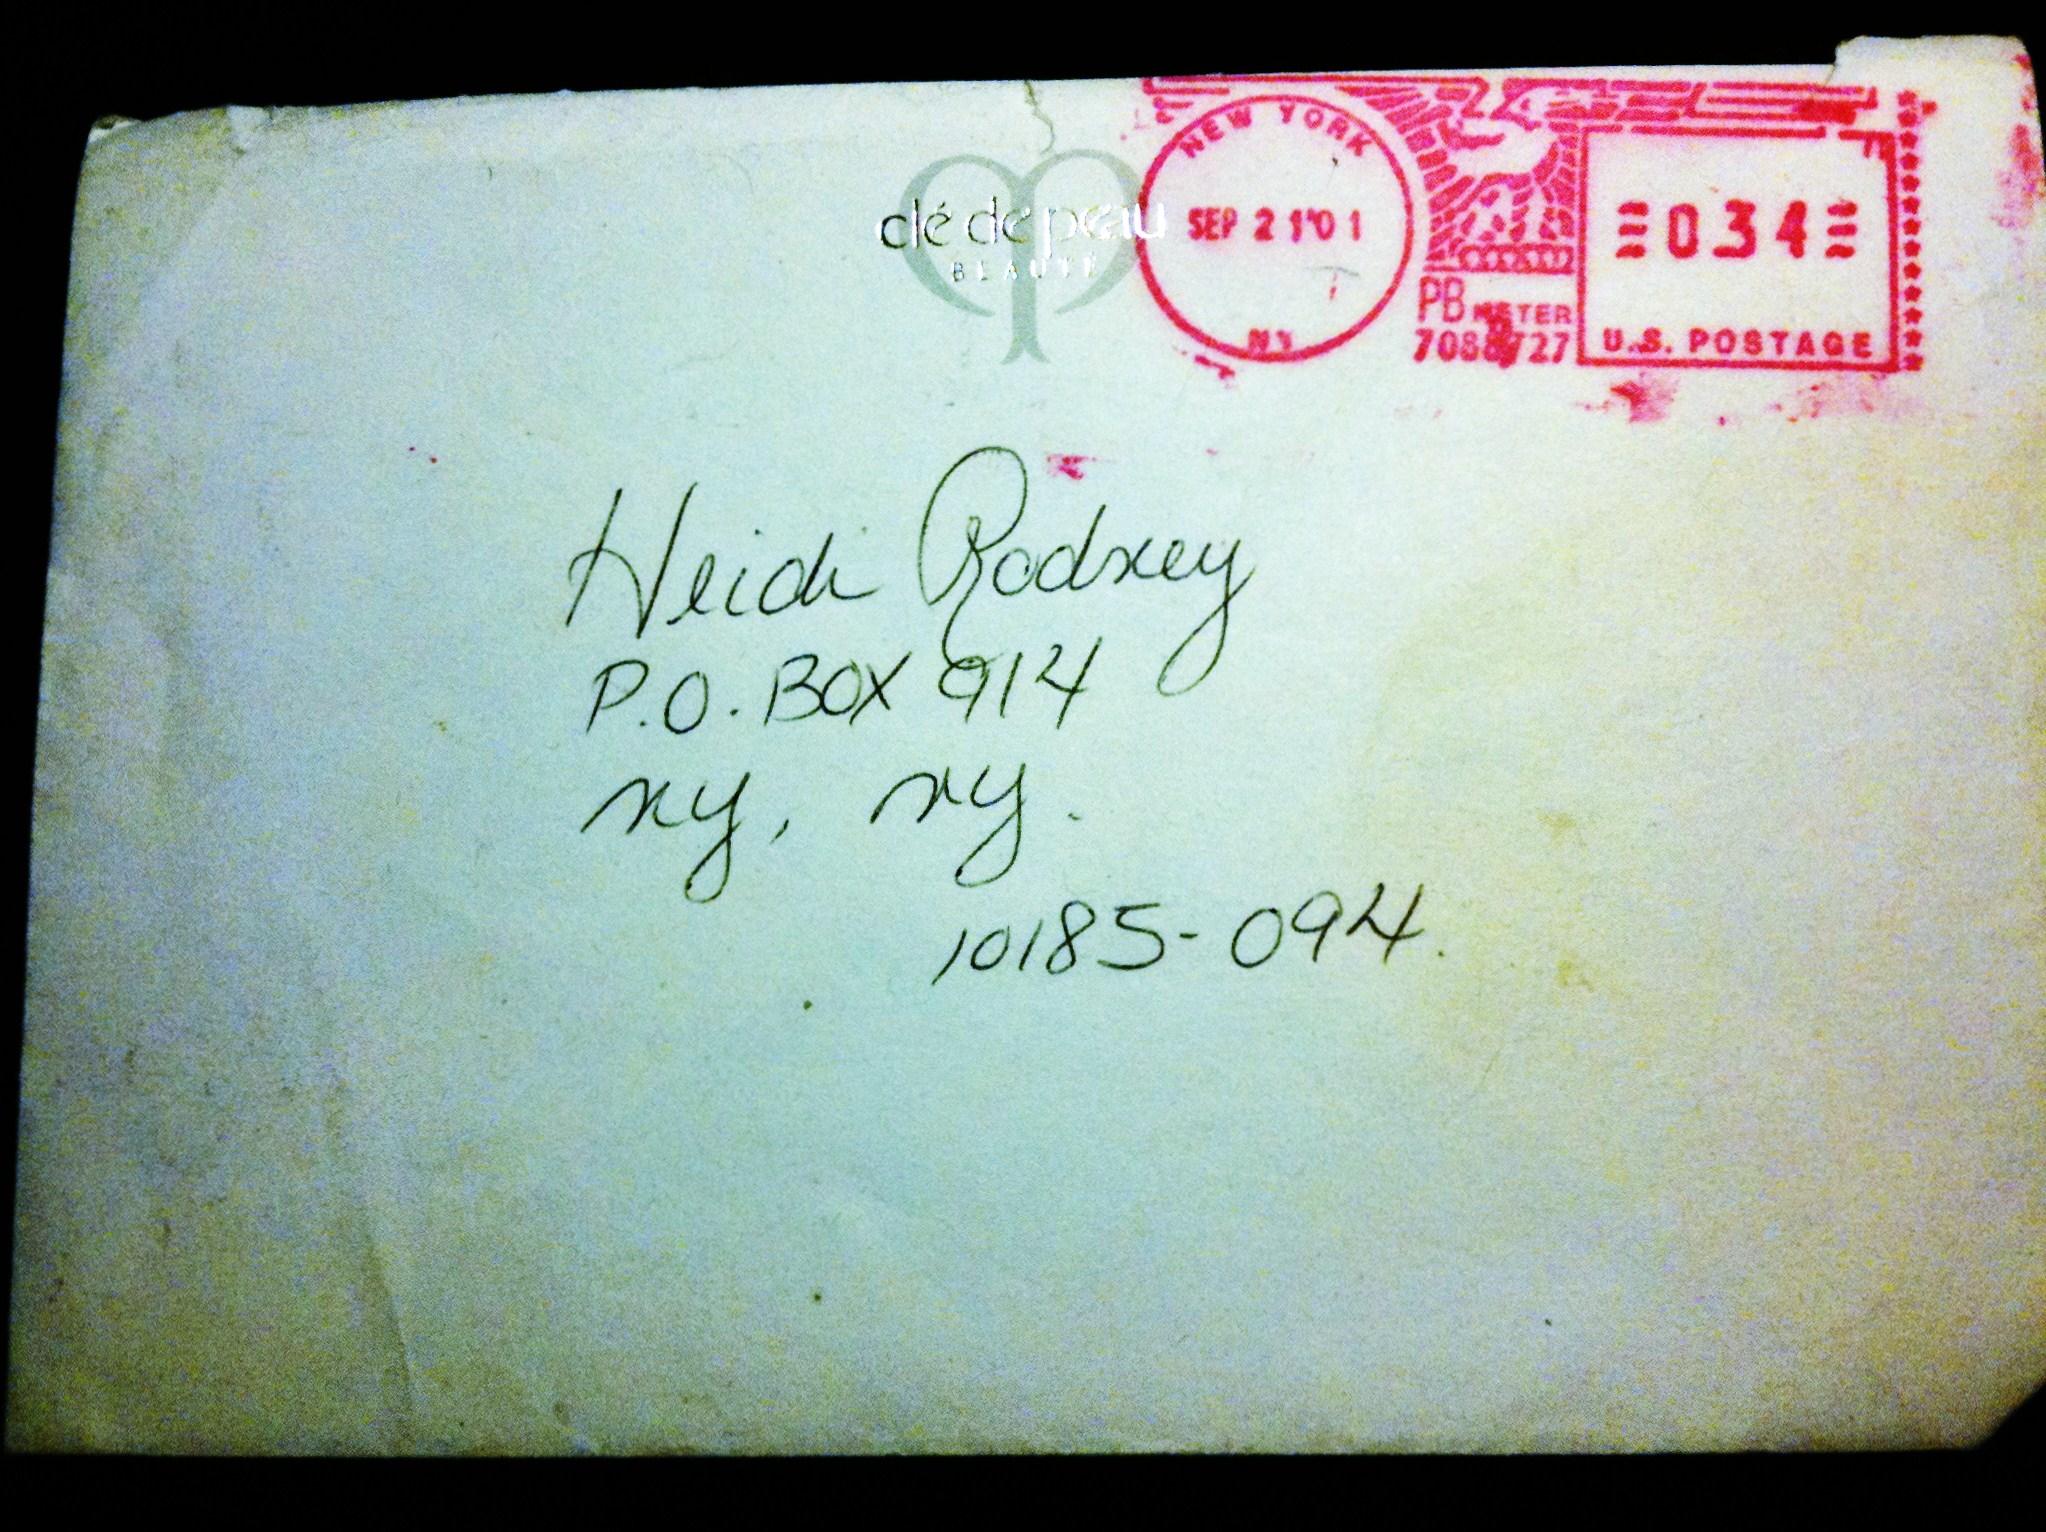 clé de peau
BEAUTÉ
NEW YORK
SEP 21'01
NY
PB METER
U.S. POSTAGE
034
Heidi
P.O. BOX 914
NY, NY.
10185-094.